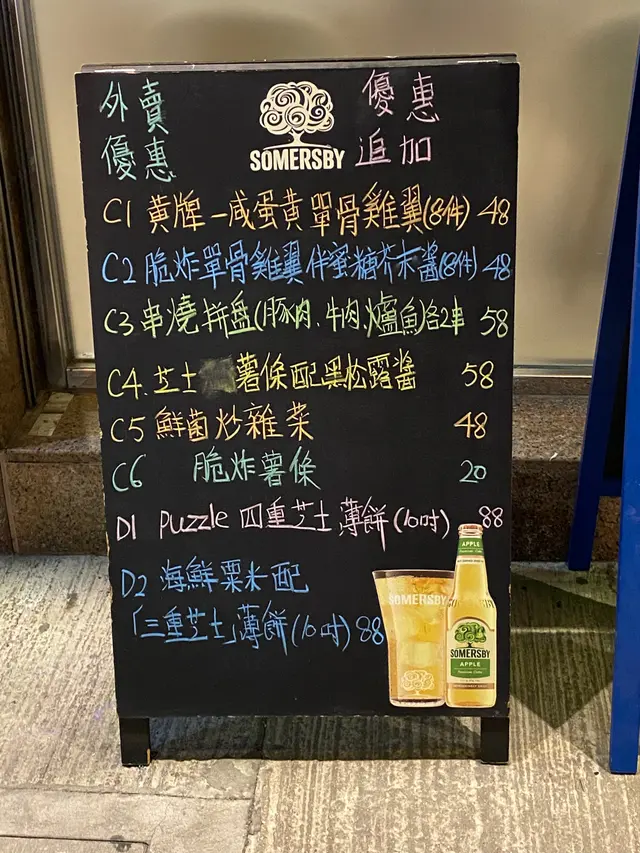 外賣
優惠
SOMERSBY
優惠
追加
C1 黃牌一咸蛋黃單骨雞翼(8件) 48
C2 脆炸單骨雞翼伴蜜糖芥末醬(8件) 48
C3 串燒拼盘(豚肉、牛肉、爐魚)各2串 58
C4. 芝士 薯條配黑松露醬 58
C5 鮮菌炒雜菜 48
C6 脆炸薯條 20
D1 Puzzle 四重芝士薄餅(10吋) 88
D2 海鮮粟米配
「三重芝士」薄餅(10吋) 88
SOMERSBY
APPLE
SOMERSBY
APPLE